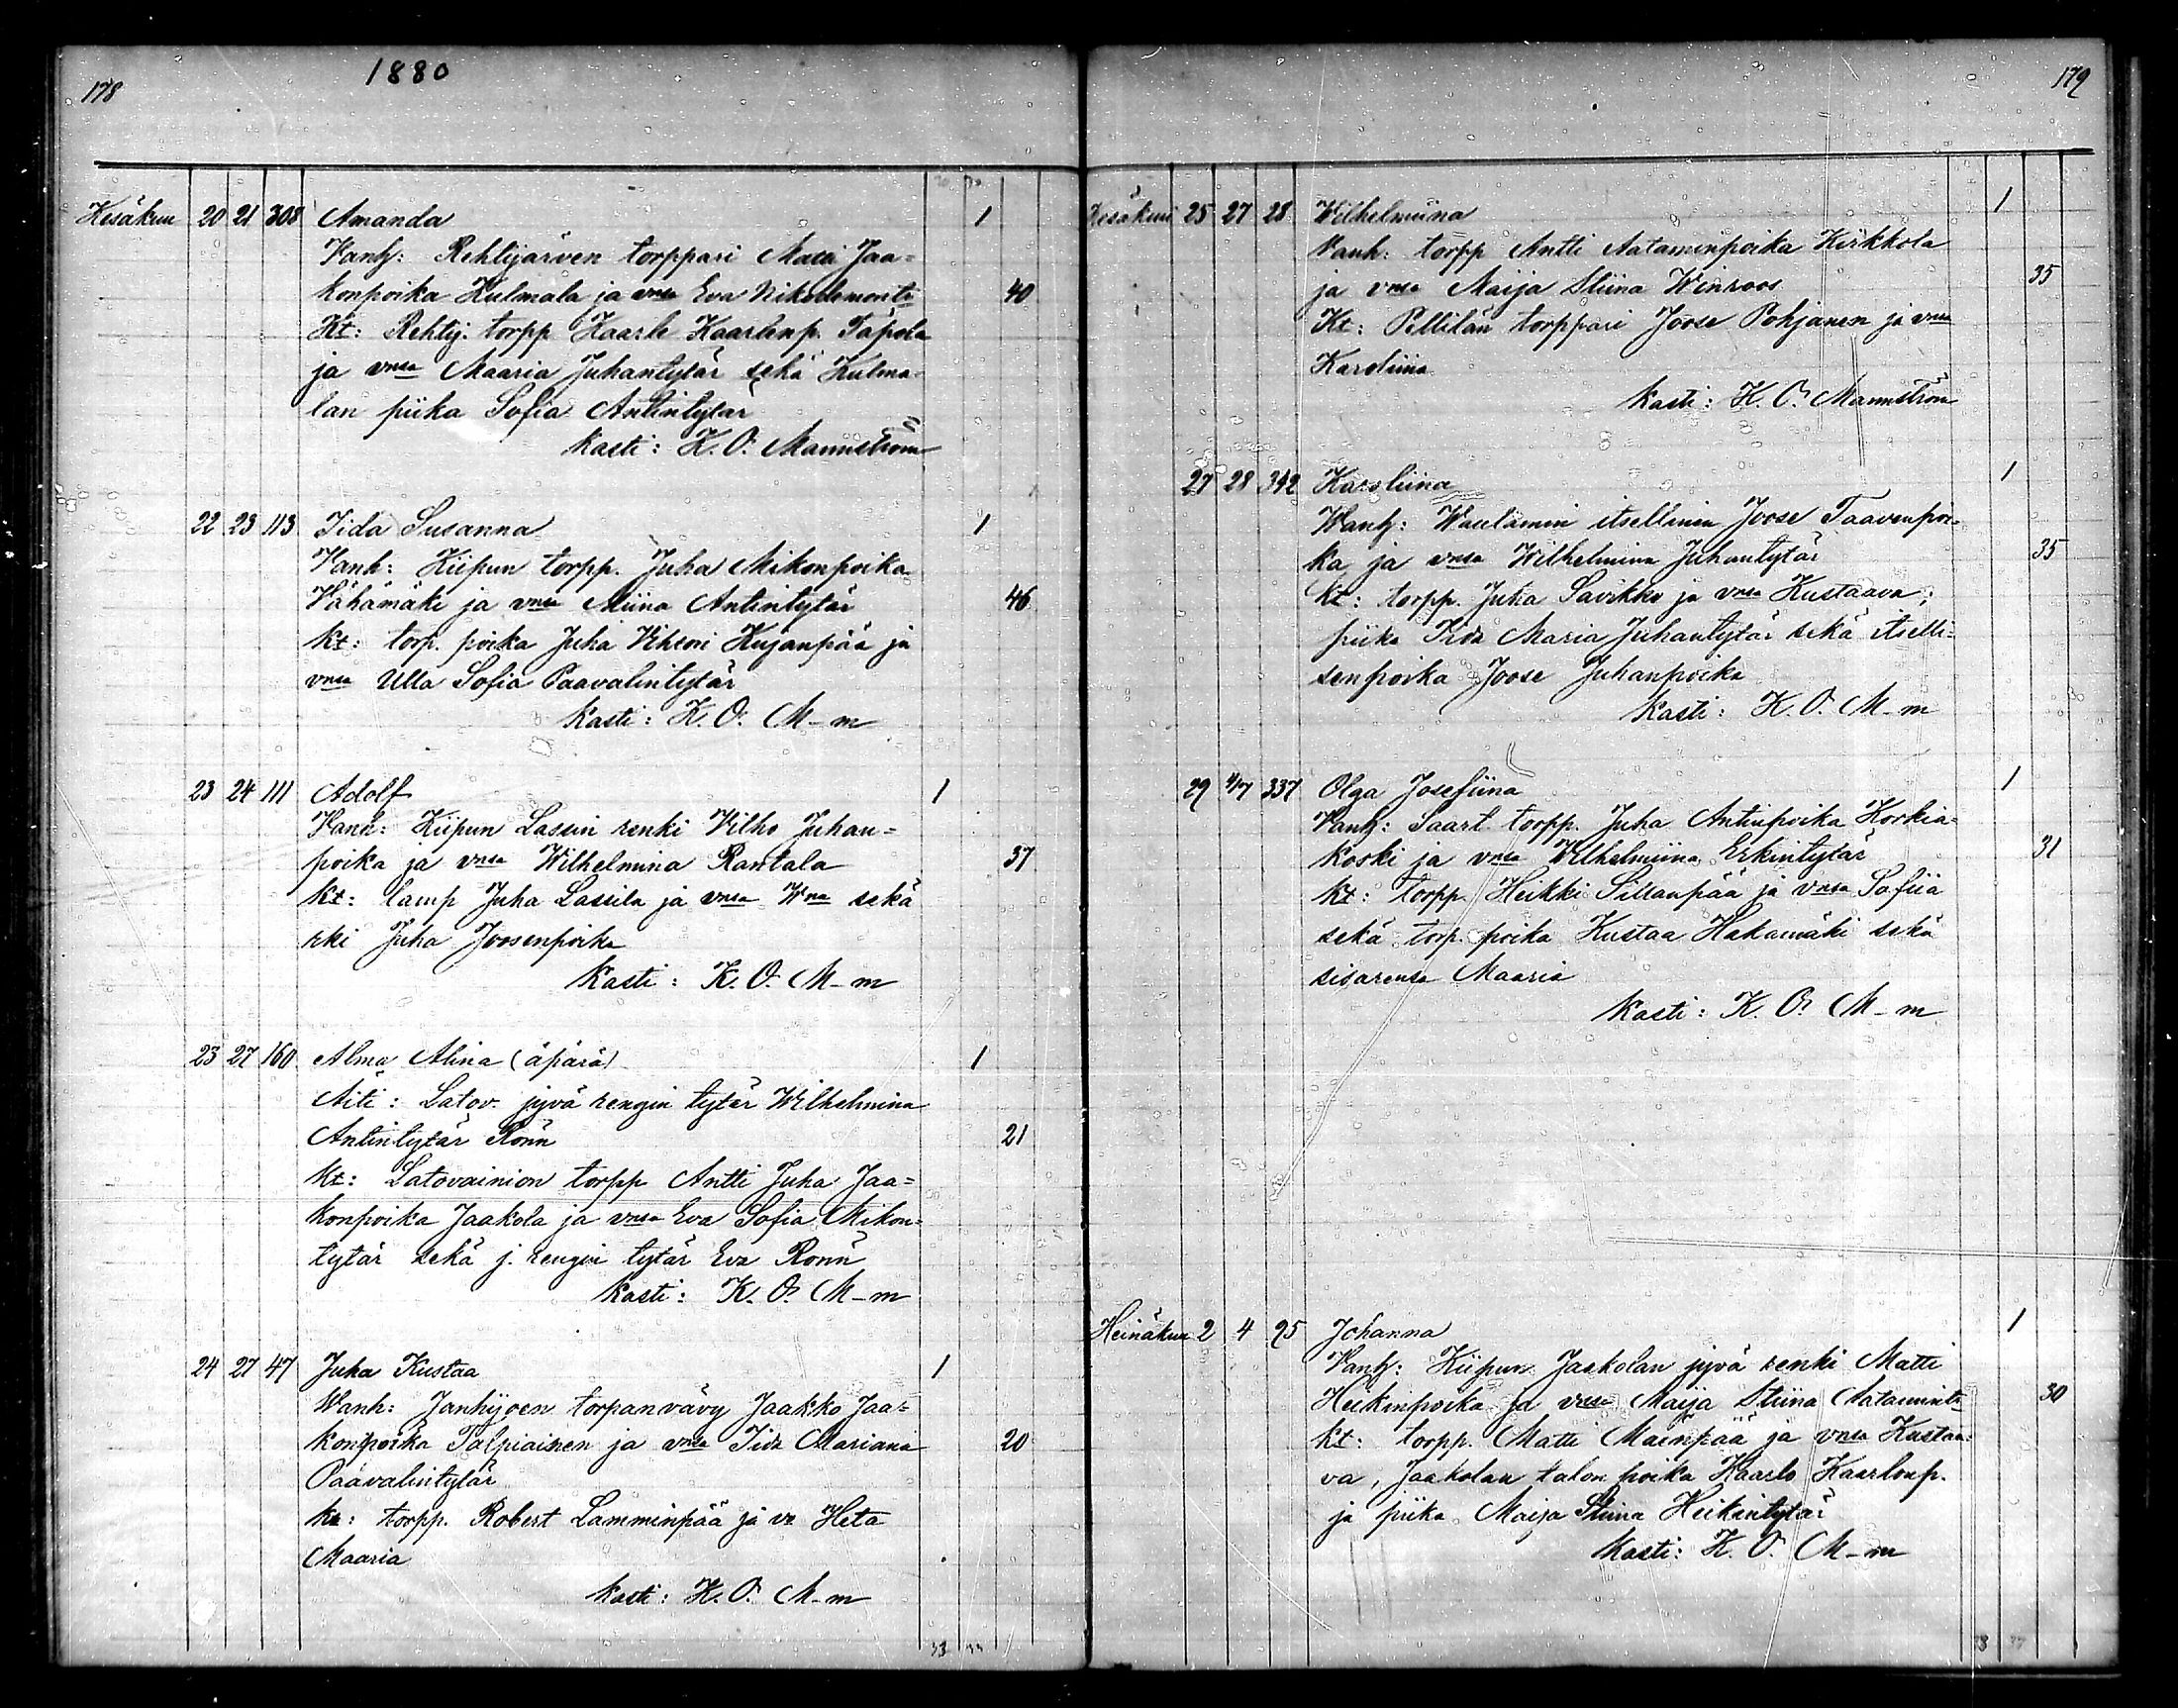 1880
178
Kesäkuu 20 21 308 Amanda 1
Vanh: Rehtijärven torppari Matti Jaa-
konpoika Kulmala ja vnsa Eva Nikodemontr 40
Kt: Rehtij. torpp Kaarle Kaarlenp. Tapola
ja vnsa Maaria Juhantytär sekä Kulma-
lan piika Sofia Antintytär
Kasti: K. O. Mannström
22 23 113 Iida Susanna 1
Vanh: Kiipun torpp. Juha Mikonpoika
Vähämäki ja vnsa Miina Antintytär 46
Kt: torp. poika Juha Vihtori Kujanpää ja
vnsa Ulla Sofia Paavalintytär
Kasti: K. O. M-m
23 24 111 Adolf 1
Vanh: Kiipun Lassin renki Vilho Juhan-
poika ja vnsa Wilhelmina Rantala 37
Kt: lamp Juha Lassila ja vnsa Wna sekä
rki Juha Joosenpoika
Kasti: K. O. M-m
23 27 160 Alma Alina (äpärä) 1
Äiti: Latov. jyvä rengin tytär Wilhelmina
Antintytär Rönn 21
Kt: Latovainion torpp Antti Juha Jaa-
konpoika Jaakola ja vnsa Eva Sofia Mikon-
tytär sekä j. rengin tytär Eva Rönn
Kasti: K. O. M-m
24 27 47 Juha Kustaa 1
Wanh: Janhijoen torpanvävy Jaakko Jaa-
konpoika Talpiainen ja vnsa Iida Mariana 20
Paavalintytär
Kt: torpp. Robert Lamminpää ja vr Heta
Maaria
Kasti: K. O. M-m
179
Kesäkuu 25 27 28 Wilhelmiina 1
Vanh: torpp Antti Aataminpoika Kirkkola
ja vnsa Maija Stiina Winroos 35
Kt: Pellilän torppari Joose Pohjanen ja vnsa
Karoliina
Kasti: K. O. Mannström
27 28 342 Karoliina 1
Wanh: Waulamin itsellinen Joose Taavenpoi-
ka ja vnsa Wilhelmina Juhantytär 35
Kt: torpp. Juha Savikko ja vnsa Kustaava;
piika Iida Maria Juhantytär sekä itselli-
senpoika Joose Juhanpoika
Kasti: K. O. M-m
29 4/7 337 Olga Josefiina 1
Vanh: Saart. torpp. Juha Antinpoika Korkia-
koski ja vnsa Wilhelmiina Erkintytär 31
Kt: torpp. Heikki Sillanpää ja vnsa Sofiia
sekä torp. poika Kustaa Hakamäki sekä
sisarensa Maaria
Kasti: K. O. M-m
Heinäkuu 2 4 95 Johanna 1
Vanh: Kiipun Jaakolan jyvä renki Matti
Heikinpoika ja vnsa Maija Stiina Aatamintr 30
Kt: torpp. Matti Mäenpää ja vnsa Kustaa-
va, Jaakolan talon poika Kaarlo Kaarlonp.
ja piika Maija Stiina Heikintytär
Kasti: K. O. M-m